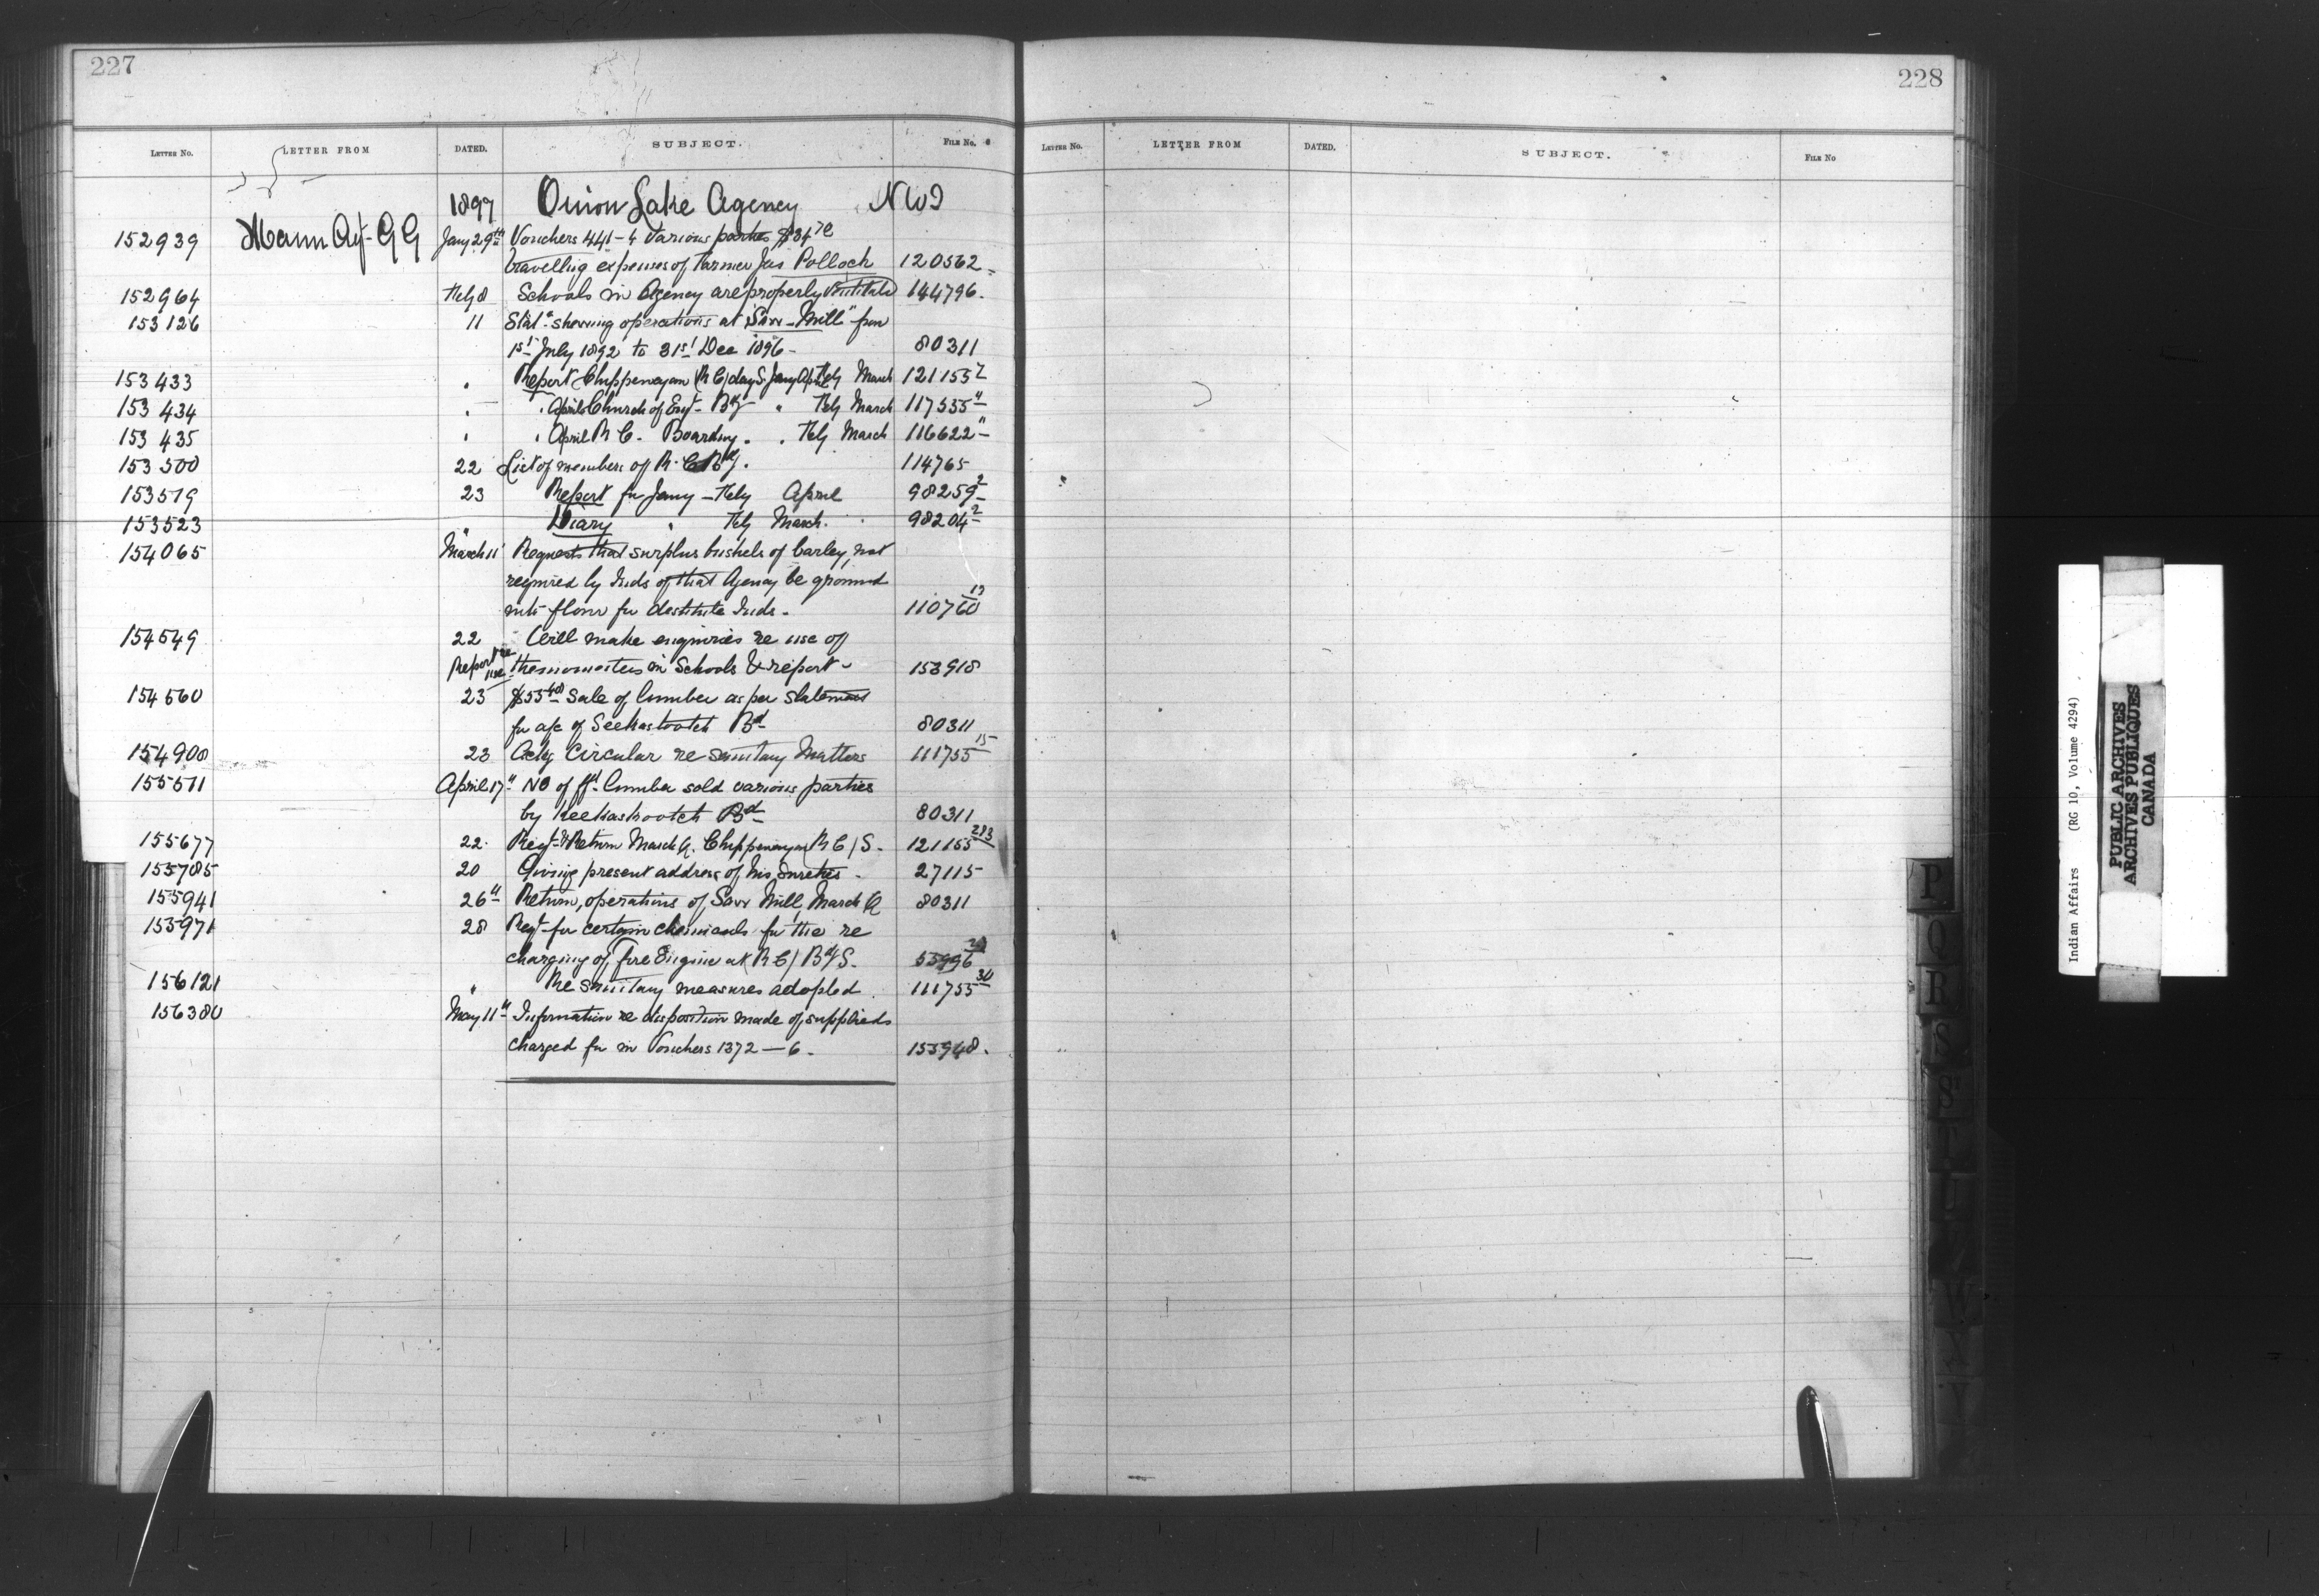 227
LETTER NO. LETTER FROM DATED. SUBJECT. FILE NO.
1897 Onion Lake Agency NWT
152939 Mann Agt GG Jany 29th Vouchers 441-4 Various parties
travelling expenses of Farmer Jas Pollock 120562
152964 Feby 8 Schools in Agency are properly ventilated 144796.
153126 11 Stat. shewing operations at "Saw-Mill" from
1st July 1892 to 31st Dec 1896 - 80311
153433 Report Chippewayan (RC) day S. Jany April Feby March 121155
153434 " April Church of Eng. Bdg " Feby March 117535
153435 " April R C. Boarding " Feby March 116622
153500 22 List of members of R. C Bdg. 114765
153519 23 Report for Jany - Feby April 98259 2
153523 " Diary " Feby March. 98204 2
154065 March 11 Requests that surplus bushels of barley, not
required by Inds of that Agency be ground
into flour for destitute Inds. 110760
154549 22 Will make enquiries re use of
Report re use thermometers in Schools & report - 153918
154560 23 Sale of lumber as per statement
for a/c of Seekaskootch Bd 80311
154908 23 Ackg Circular re sanitary Matters 111755 15
155511 April 17" No of ft. lumber sold various parties
by Keekaskootch Bd 80311
155677 22. Regt & Return March Q. Chippewayan R C / S. 121155 2&3
155785 20 Giving present address of his sureties - 27115
155941 26" Return, operations of Saw Mill March Q 80311
155971 28 Reqt for certain chemicals for the re
charging of Fire Engine at (R C) Bdg S. 55996
156121 " Re Sanitary measures adopted. 111755 30
156380 May 11" Information re disposition made of supplies
charged for in Vouchers 1372-6. 155948.
228
LETTER NO. LETTER FROM DATED. SUBJECT. FILE NO
P
Q
R
S
S
T
U
W
X
Y
Indian Affairs (RG 10, Volume 4294)
PUBLIC ARCHIVES
ARCHIVES PUBLIQUES
CANADA